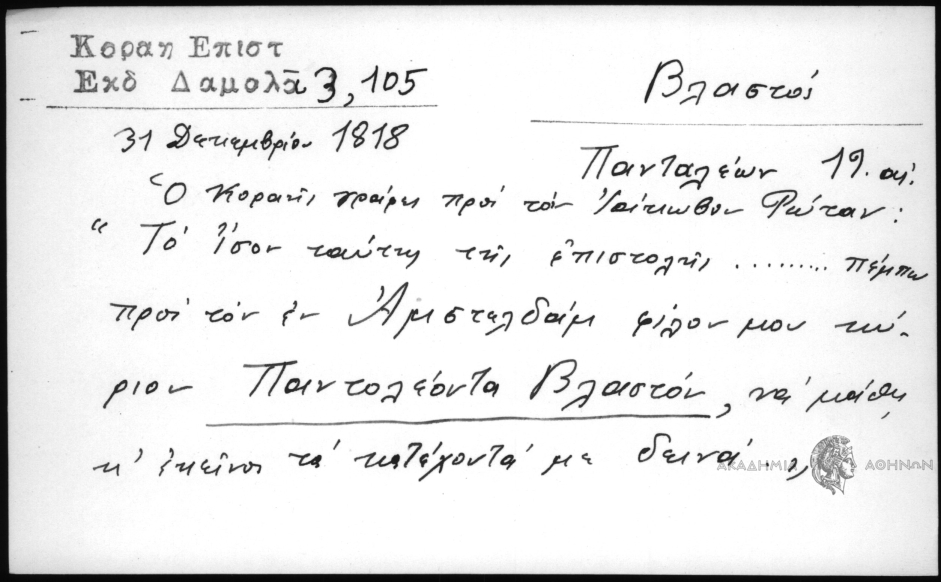 Κοραη Επιστ
Εκδ Δαμολᾶ 3, 105
Βλαστός
31 Δεκεμβρίου 1818
Πανταλέων 19. αἰ.
Ὁ Κοραῆς γράφει πρὸς τὸν Ἰάκωβον Ρώταν:
" Τὸ ἴσον ταύτης τῆς ἐπιστολῆς ......... πέμπω
πρὸς τὸν ἐν Ἀμστελδάμ φίλον μου κύ-
ριον Παντολέοντα Βλαστόν, νὰ μάθῃ
κ' ἐκεῖνος τὰ κατέχοντά με δεινά . "
ΑΚΑΔΗΜΙΑ ΑΘΗΝΩΝ